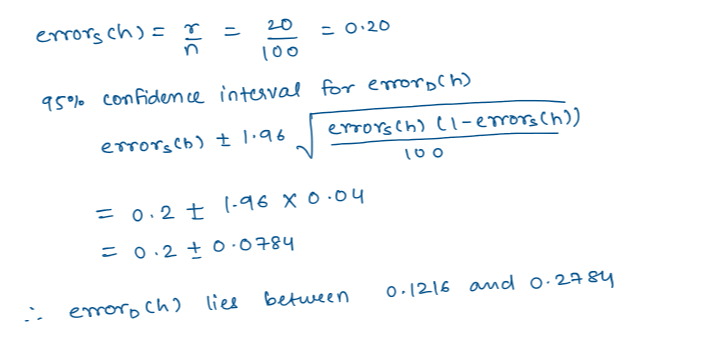 errors(h) = r/n = 20/100 = 0.20
95% confidence interval for errorD(h)
errors(h) ± 1.96 √(errors(h) (1-errors(h))/100)
= 0.2 ± 1.96 × 0.04
= 0.2 ± 0.0784
∴ errorD(h) lies between 0.1216 and 0.2784